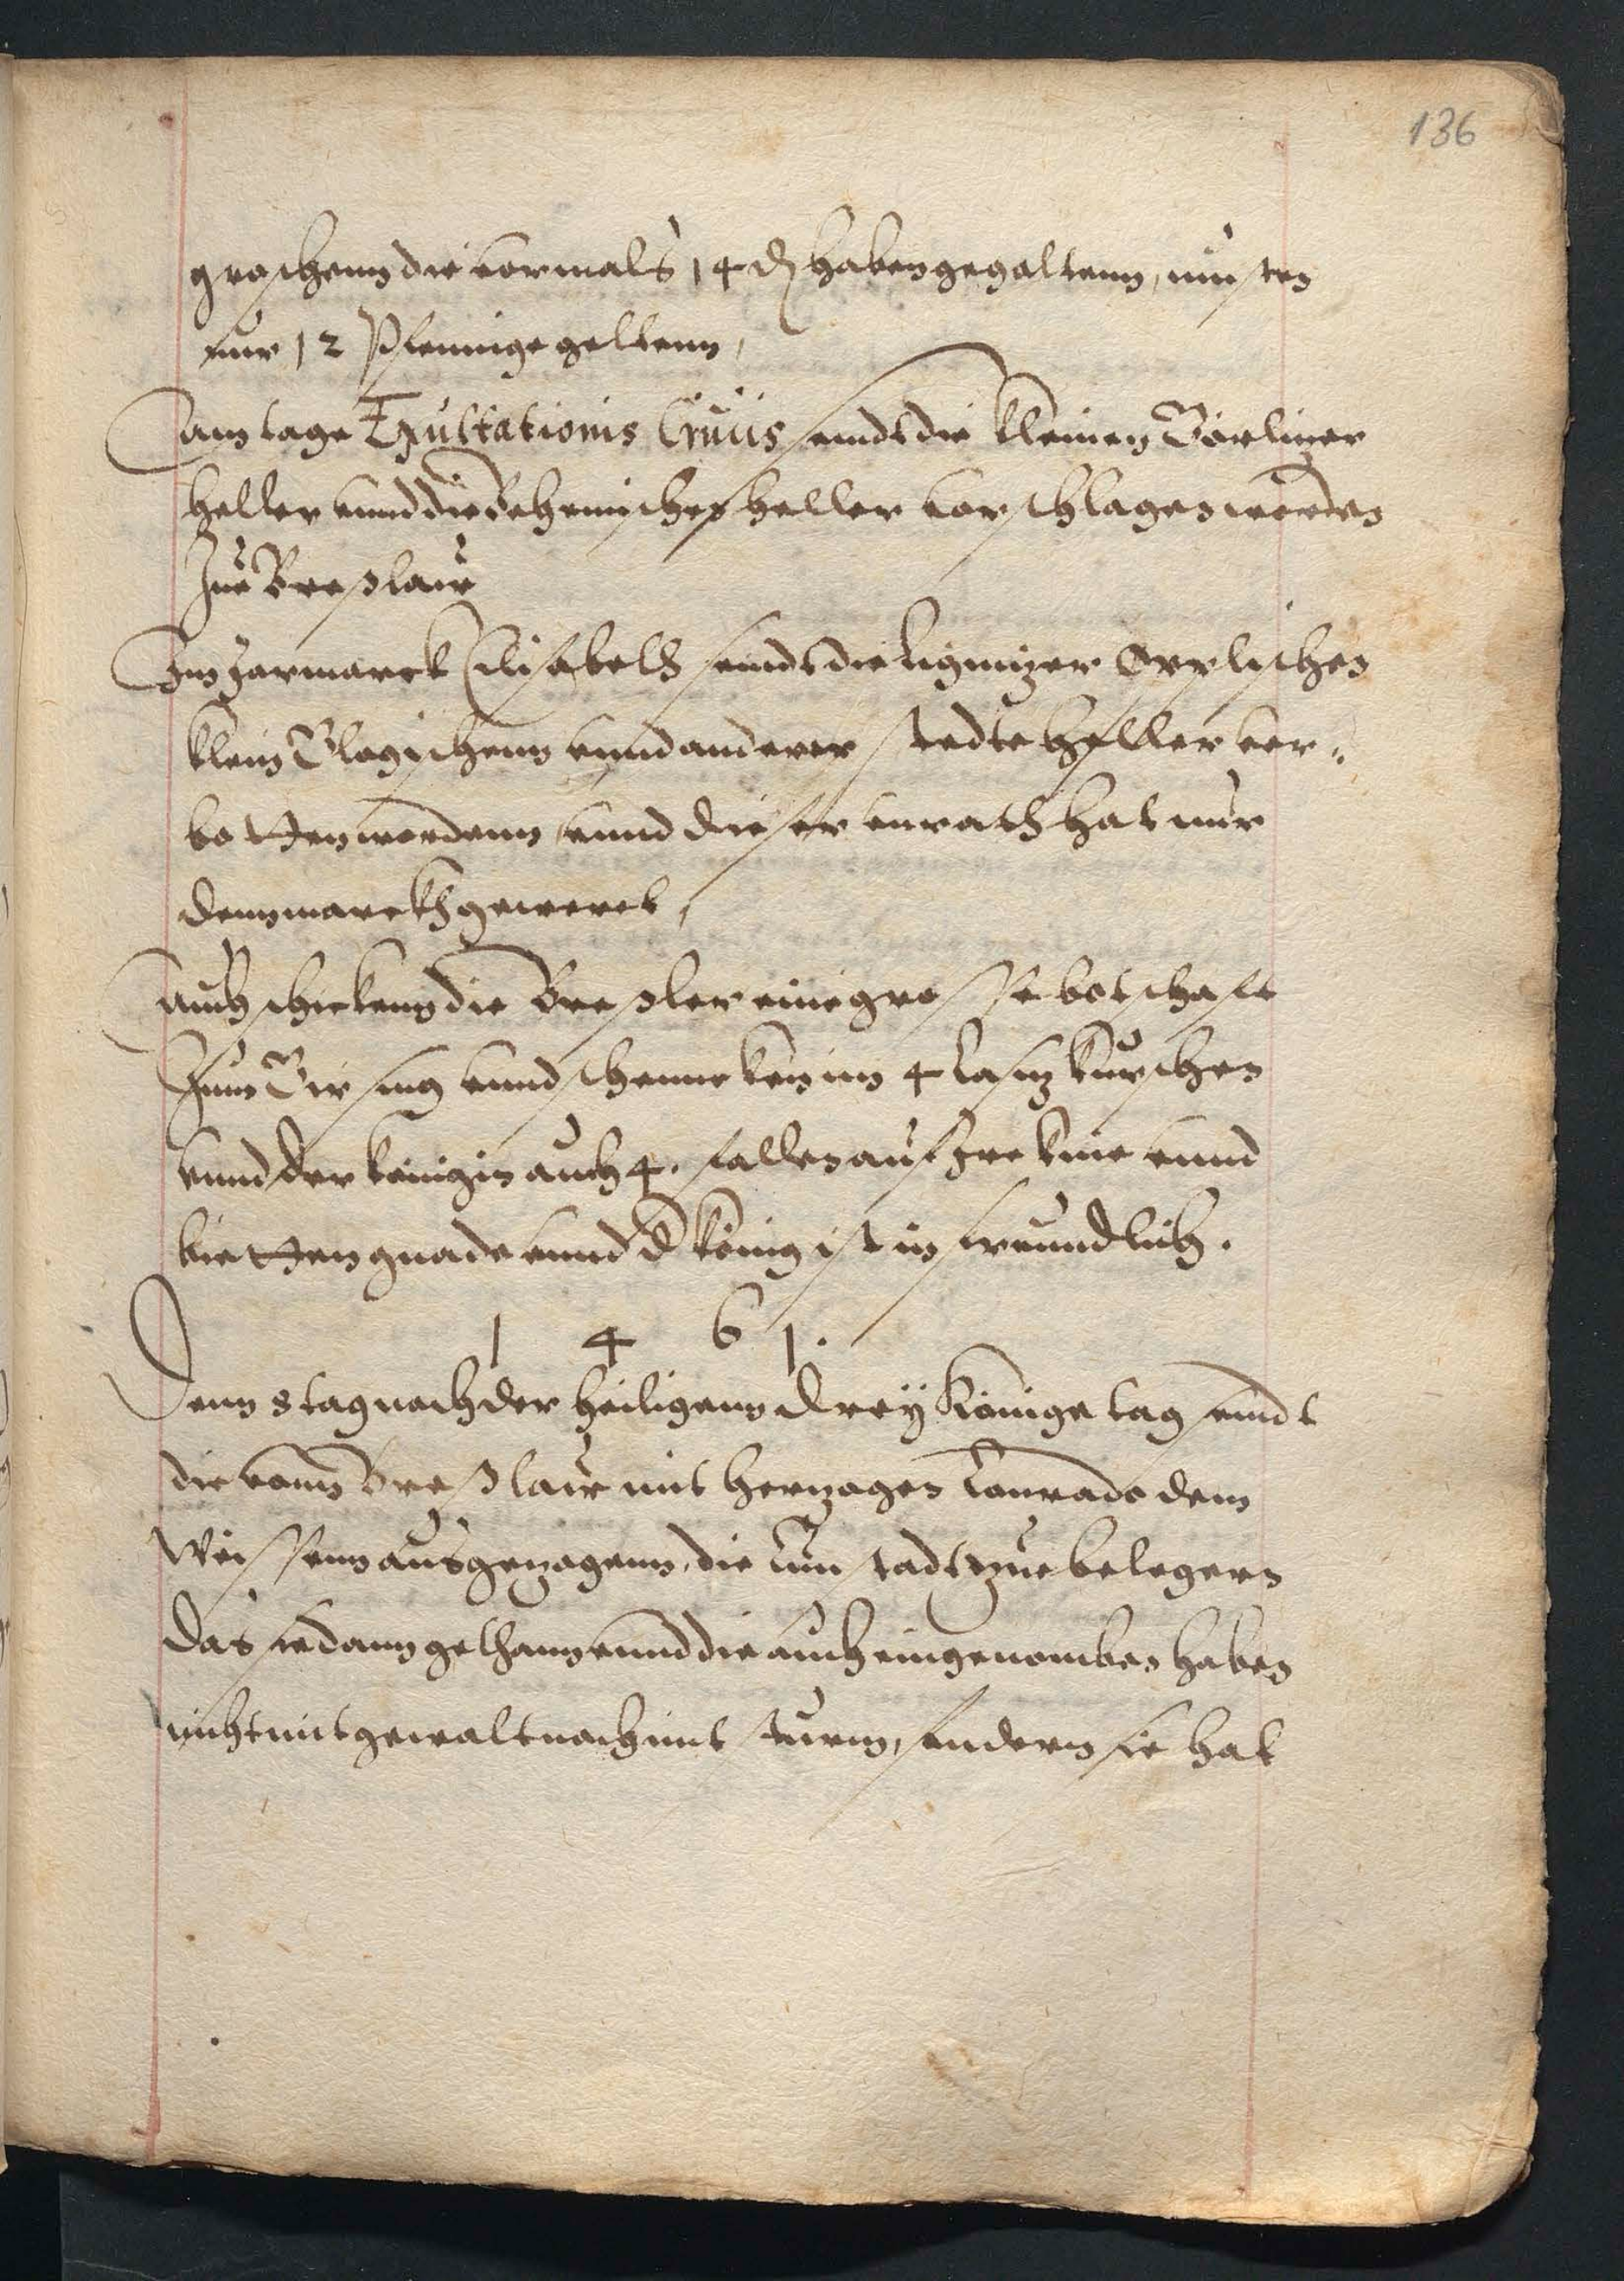 136
groschenn die vormals 14 ₰ haben gegoltenn, musten
nur 12 Pfennige geltenn,
Am tage Exultationis Crucis seindt die kleinen Görlizer
heller vnnd die Behemischen heller vorschlagen worden
Zue Breßlaw
Im Jarmarck Elisabeth seindt die Lignizer Opplischen
klein Glogischenn vnnd anderer stedte heller ver„
botten wordenn vnnd dieser vnrath hat nur
denn marckh geweret,
Auch schicken die Breßler eine grosse botschaft
Zum Girsing vnnd schenncken im 4 kürschen
vnnd der königin auch 4. fallen auf Jre knie vnnd
bietten gnade vnnd d könig ist in freundlich.
1 4 6 1.
Denn 8 tag nach der heiligenn Dreÿ Könige tag seindt
die vonn Breßlaw mit herzogen Conrado dem
Weissenn ausgezogenn, die stadt zue belegern
Das sie dann gethann vnnd die auch eingenomben haben
nicht mit gewalt noch mit sturm, sondern sie hat